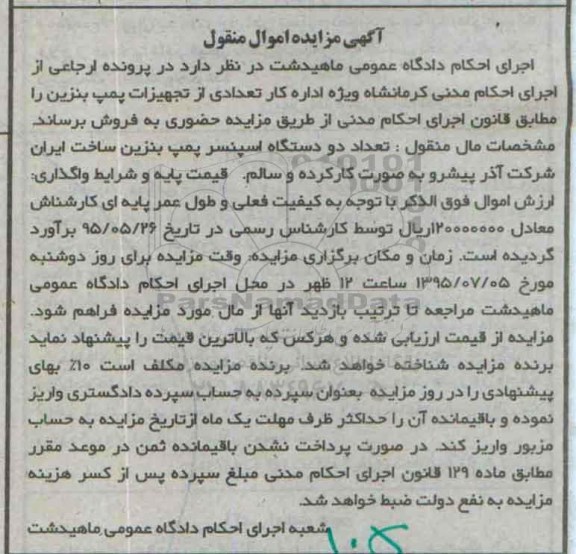 آگهی مزایده اموال منقول
اجرای احکام دادگاه عمومی ماهیدشت در نظر دارد در پرونده ارجاعی از
اجرای احکام مدنی کرمانشاه ویژه اداره کار تعدادی از تجهیزات پمپ بنزین را
مطابق قانون اجرای احکام مدنی از طریق مزایده حضوری به فروش برساند.
مشخصات مال منقول : تعداد دو دستگاه اسپنسر پمپ بنزین ساخت ایران
شرکت آذر پیشرو به صورت کارکرده و سالم. قیمت پایه و شرایط واگذاری:
ارزش اموال فوق الذکر با توجه به کیفیت فعلی و طول عمر پایه ای کارشناش
معادل ۱۲۰۰۰۰۰۰۰ریال توسط کارشناس رسمی در تاریخ ۹۵/۰۵/۲۶ برآورد
گردیده است. زمان و مکان برگزاری مزایده: وقت مزایده برای روز دوشنبه
مورخ ۱۳۹۵/۰۷/۰۵ ساعت ۱۲ ظهر در محل اجرای احکام دادگاه عمومی
ماهیدشت مراجعه تا ترتیب بازدید آنها از مال مورد مزایده فراهم شود.
مزایده از قیمت ارزیابی شده و هرکس که بالاترین قیمت را پیشنهاد نماید
برنده مزایده شناخته خواهد شد. برنده مزایده مکلف است ۱۰٪ بهای
پیشنهادی را در روز مزایده بعنوان سپرده به حساب سپرده دادگستری واریز
نموده و باقیمانده آن را حداکثر ظرف مهلت یک ماه ازتاریخ مزایده به حساب
مزبور واریز کند. در صورت پرداخت نشدن باقیمانده ثمن در موعد مقرر
مطابق ماده ۱۲۹ قانون اجرای احکام مدنی مبلغ سپرده پس از کسر هزینه
مزایده به نفع دولت ضبط خواهد شد.
شعبه اجرای احکام دادگاه عمومی ماهیدشت
ParsNamadData